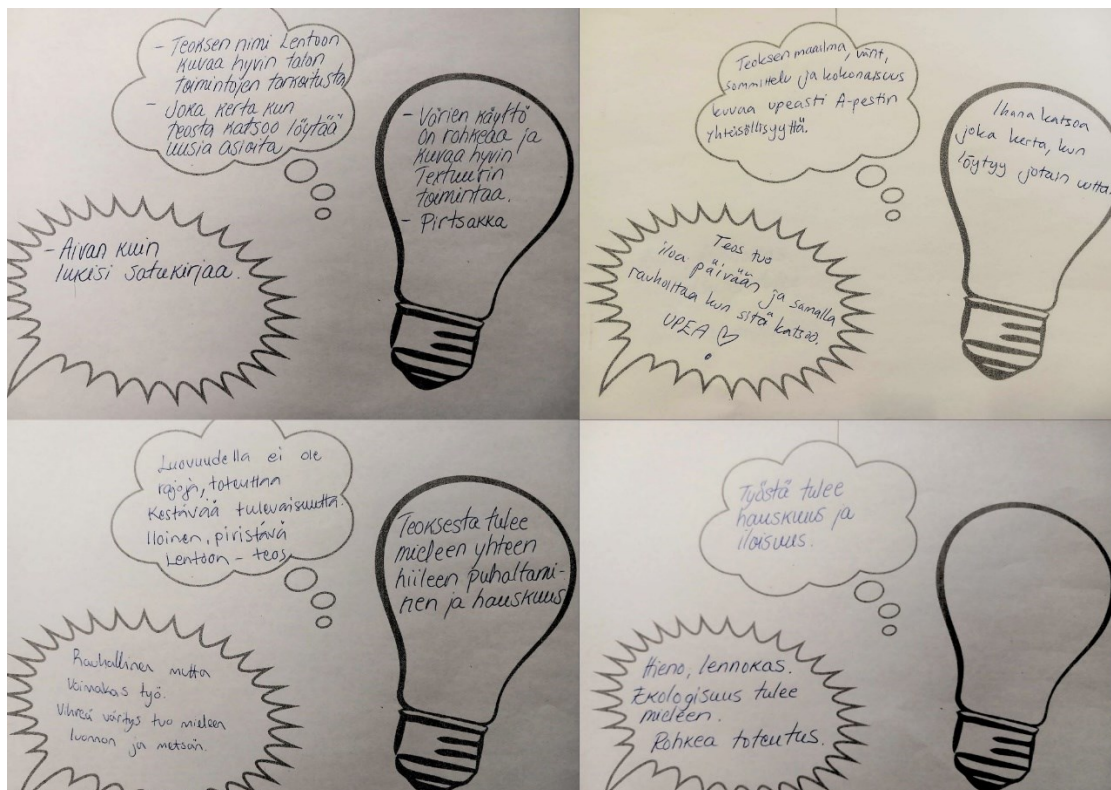 - Teoksen nimi Lentoon
kuvaa hyvin talon
toimintojen tarkoitusta
- Joka kerta kun
Teosta katsoo löytää
uusia asioita
- Värien käyttö
on rohkeaa ja
kuvaa hyvin
Textuurin
toimintaa.
- Pirtsakka
- Aivan kuin
lukisi satukirjaa.
Teoksen maailma, värit,
sommittelu ja kokonaisuus
kuvaa upeasti A-pestin
yhteisöllisyyttä.
Ihana katsoa
joka kerta, kun
löytyy jotain uutta
Teos tuo
iloa päivään ja samalla
rauhoittaa kun sitä katsoo.
UPEA ♡
Luovuudella ei ole
rajoja, toteuttaa
kestävää tulevaisuutta.
Iloinen, piristävä
Lentoon - teos
Teoksesta tulee
mieleen yhteen
hiileen puhaltami-
nen ja hauskuus
Rauhallinen mutta
Voimakas työ.
Vihreä väritys tuo mieleen
luonnon ja metsän.
Työstä tulee
hauskuus ja
iloisuus.
Hieno, lennokas.
Ekologisuus tulee
mieleen.
Rohkea toteutus.